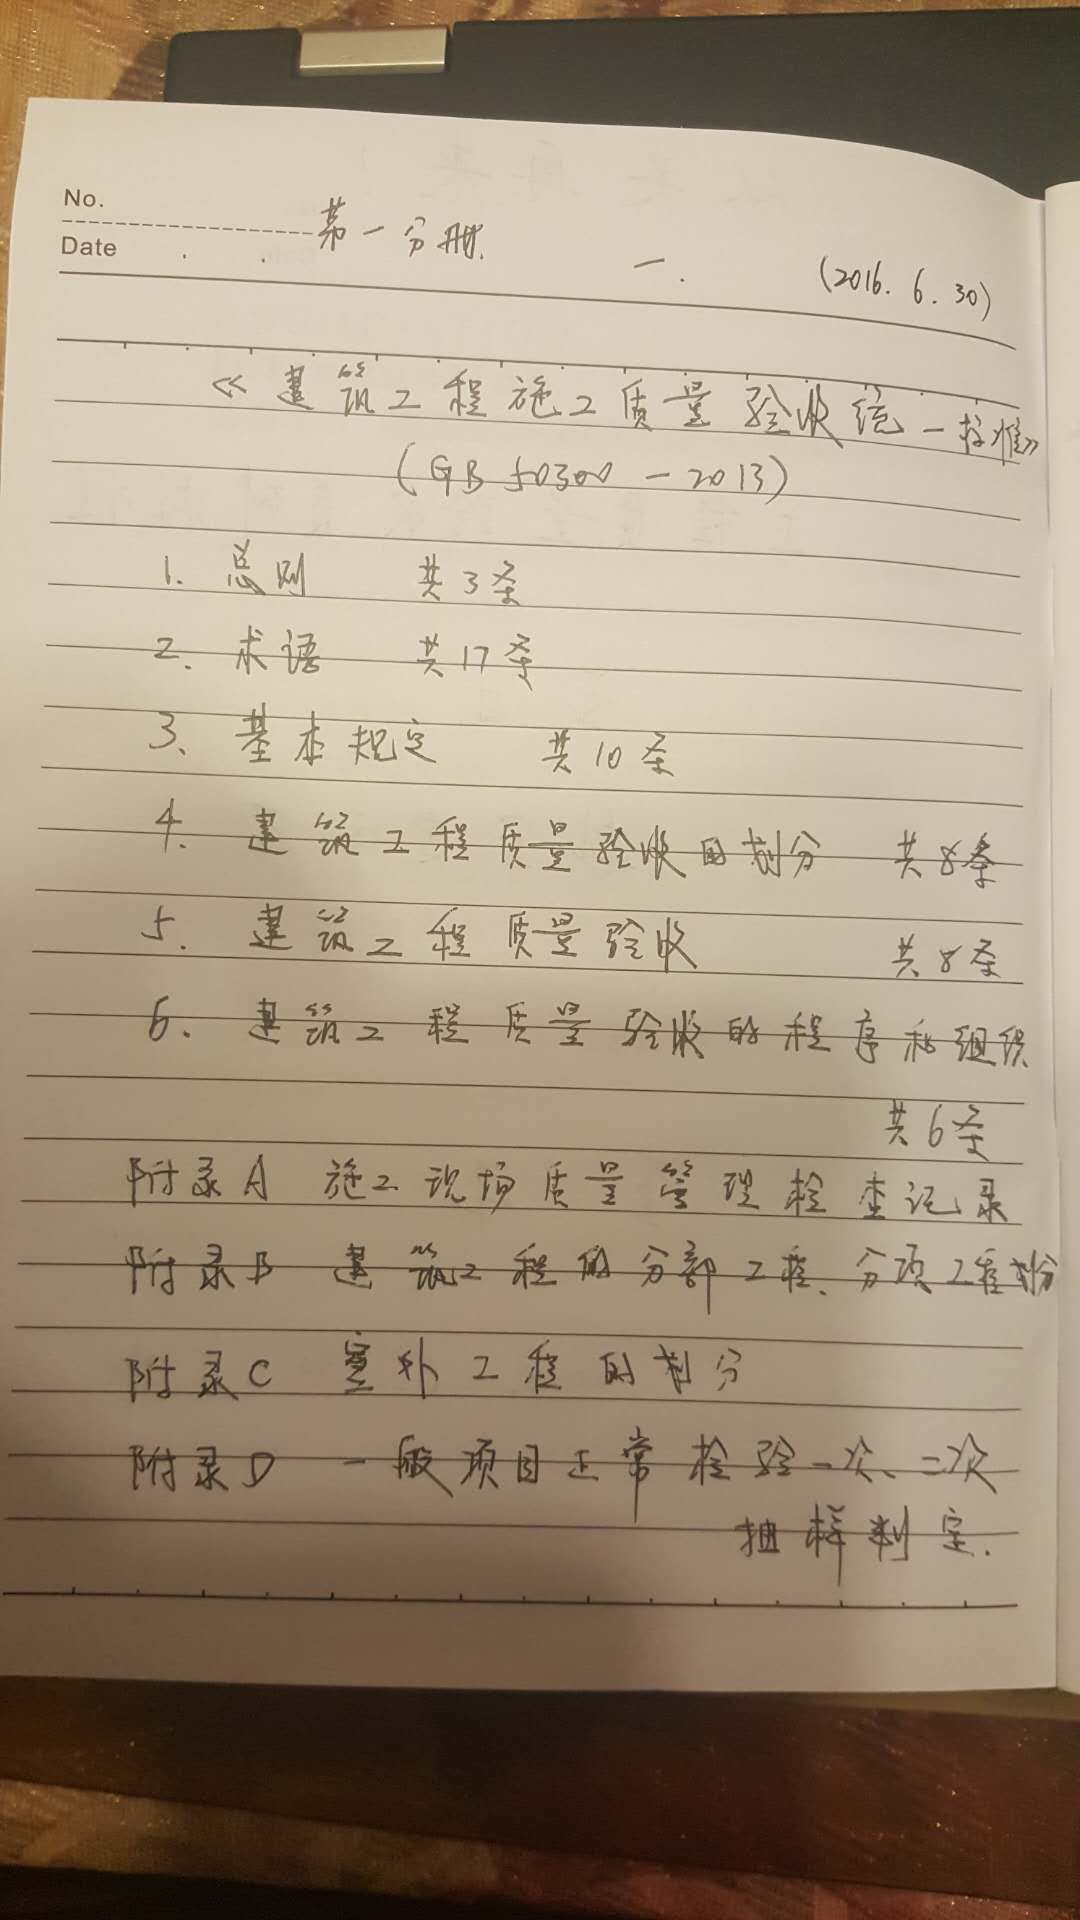 No.
Date
第一分册.
一.
(2016.6.30)
《建筑工程施工质量验收统一标准》
(GB 50300-2013)
1. 总则 共3条
2. 术语 共17条
3、基本规定 共10条
4. 建筑工程质量验收的划分 共8条
5. 建筑工程质量验收 共8条
6. 建筑工程质量验收的程序和组织
共6条
附录A 施工现场质量管理检查记录
附录B 建筑工程的分部工程、分项工程划分
附录C 室外工程的划分
附录D 一般项目正常检验一次、二次
抽样判定.